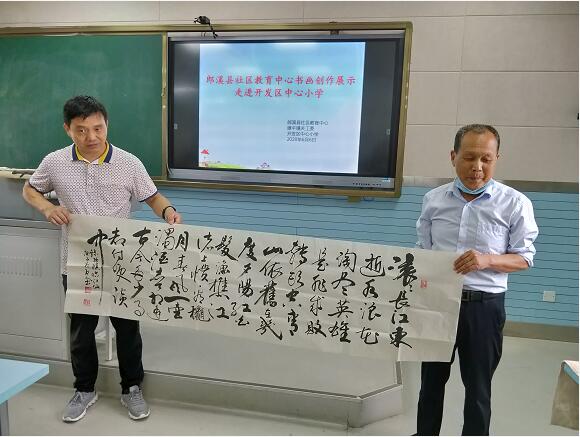 郎溪县社区教育中心书画创作展示
走进开发区中心小学
郎溪县社区教育中心
建平镇关工委
开发区中心小学
滚滚长江東
逝水浪花
淘尽英雄
是非成败
转头空青
山依旧几
度夕阳红白
发渔樵江
渚上惯看秋
月春风一壶
浊酒喜相逢
古今多少事
都付笑谈
中